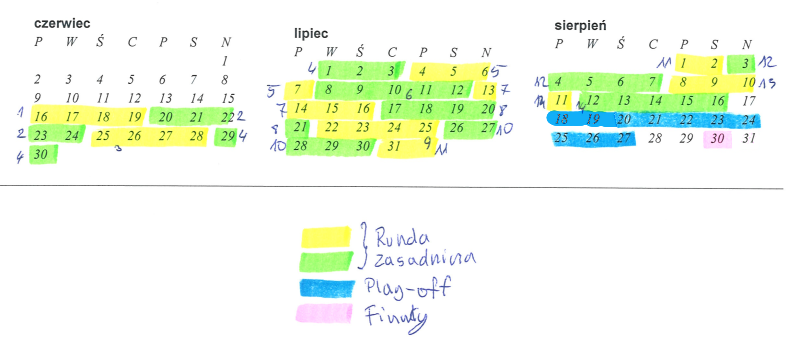 czerwiec
P W Ś C P S N
1
2 3 4 5 6 7 8
9 10 11 12 13 14 15
1 16 17 18 19 20 21 22 2
2 23 24 25 26 27 28 29 4
3
4 30
lipiec
P W Ś C P S N
4 1 2 3 4 5 6 5
5 7 8 9 10 6 11 12 13 7
7 14 15 16 17 18 19 20 8
8 21 22 23 24 25 26 27 10
10 28 29 30 31 9 11
sierpień
P W Ś C P S N
11 1 2 3 12
12 4 5 6 7 8 9 10 13
11 12 13 14 15 16 17
18 19 20 21 22 23 24
25 26 27 28 29 30 31
Runda
zasadnicza
Play-off
Finały